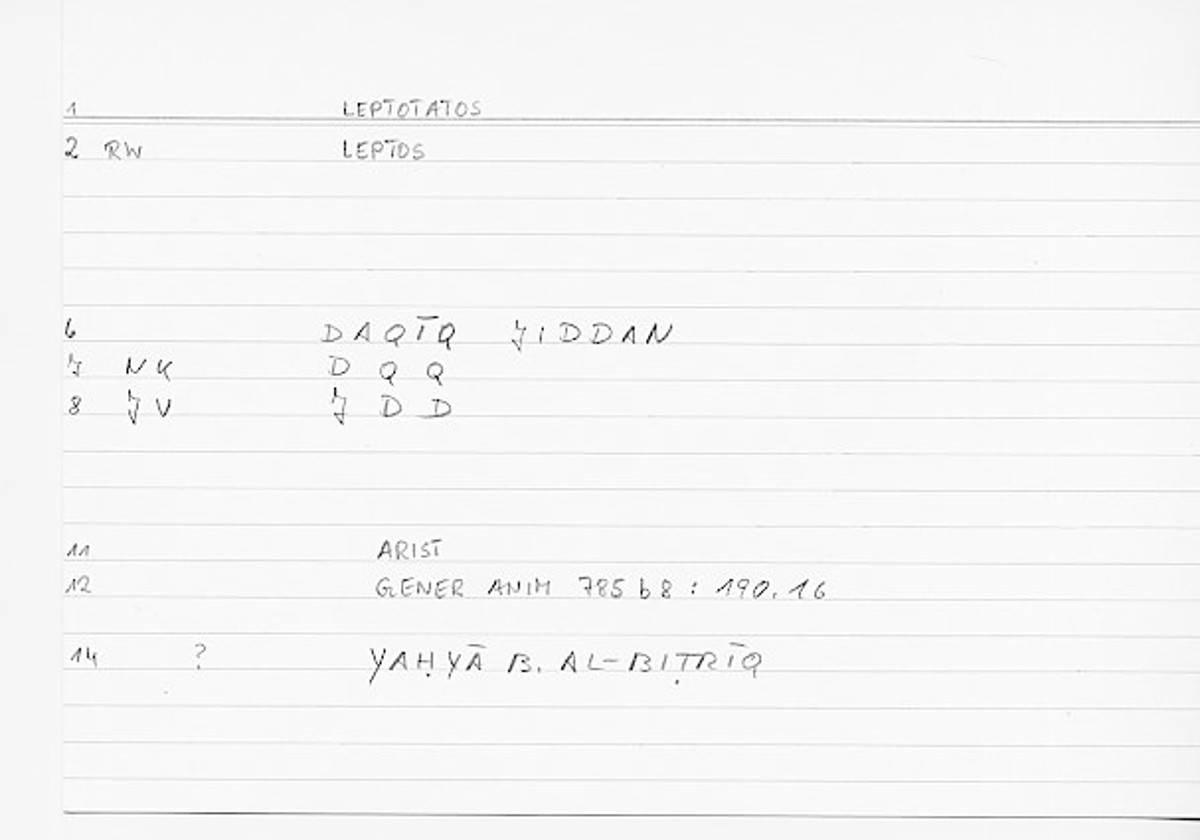 1 LEPTOTATOS
2 RW LEPTOS
6 DAQĪQ JIDDAN
7 NK D Q Q
8 JV J D D
11 ARIST
12 GENER ANIM 785 b 8 : 190.16
14 ? YAḤYĀ B. AL-BIṬRĪQ